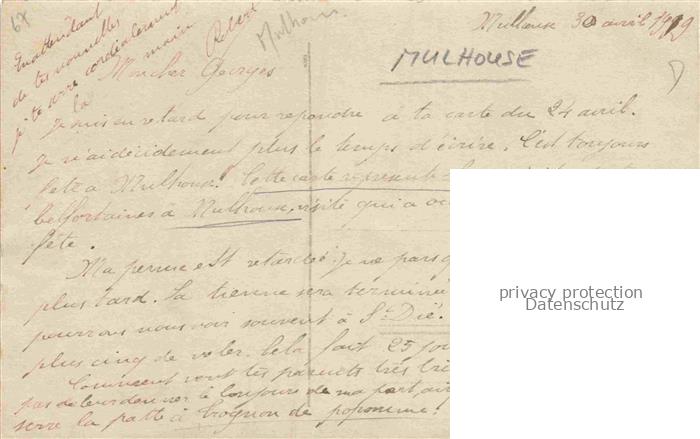 67
En attendant
de tes nouvelles
je te serre cordialement
la main
Robert
Mulhouse
Mulhouse 30 avril 1919
MULHOUSE
Mon cher Georges
Je suis en retard pour repondre à ta carte du 24 avril.
Je n'ai décidément plus le temps d'écrire. C'est toujours
fête à Mulhouse. Cette carte représente
belfortaines à Mulhouse, visite qui a
fête.
Ma perme est retardée. Je ne pars
plus tard. La tienne sera terminée
pourrons nous voir souvent à St Dié.
plus cinq de voler. Cela fait 25
Comment vont tes parents très
pas de leur donner le bonjour de ma part,
serre la patte à trognon de popomme.
privacy protection
Datenschutz